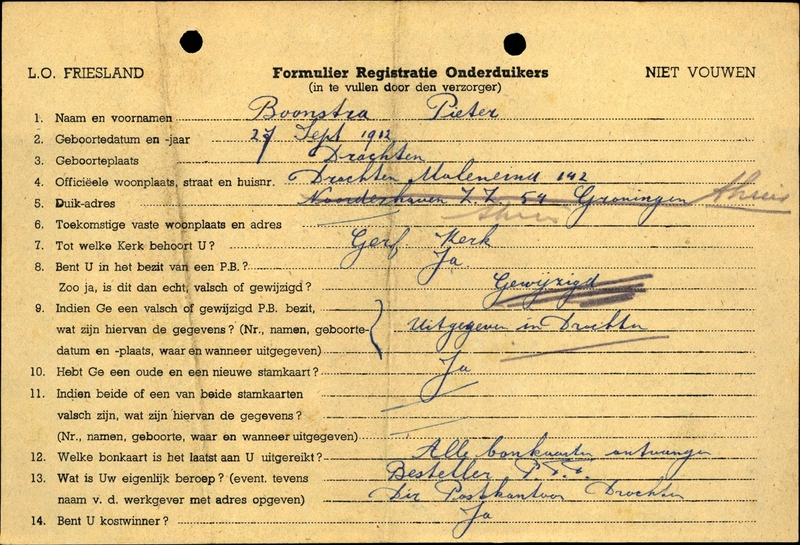 L.O. FRIESLAND Formulier Registratie Onderduikers NIET VOUWEN
(in te vullen door den verzorger)
1. Naam en voornamen Boonstra Pieter
2. Geboortedatum en -jaar 27 Sept 1912
3. Geboorteplaats Drachten
4. Officiëele woonplaats, straat en huisnr. Drachten Moleneind 142
5. Duik-adres Noorderhaven Z.Z. 54 Groningen thuis
6. Toekomstige vaste woonplaats en adres thuis
7. Tot welke Kerk behoort U? Geref. Kerk
8. Bent U in het bezit van een P.B.? Ja
Zoo ja, is dit dan echt, valsch of gewijzigd? Gewijzigd
9. Indien Ge een valsch of gewijzigd P.B. bezit,
wat zijn hiervan de gegevens? (Nr., namen, geboorte- Uitgegeven in Drachten
datum en -plaats, waar en wanneer uitgegeven)
10. Hebt Ge een oude en een nieuwe stamkaart? Ja
11. Indien beide of een van beide stamkaarten
valsch zijn, wat zijn hiervan de gegevens?
(Nr., namen, geboorte, waar en wanneer uitgegeven)
12. Welke bonkaart is het laatst aan U uitgereikt? Alle bonkaarten ontvangen
13. Wat is Uw eigenlijk beroep? (event. tevens Besteller P.T.T.
naam v. d. werkgever met adres opgeven) Dir Postkantoor Drachten
14. Bent U kostwinner? Ja